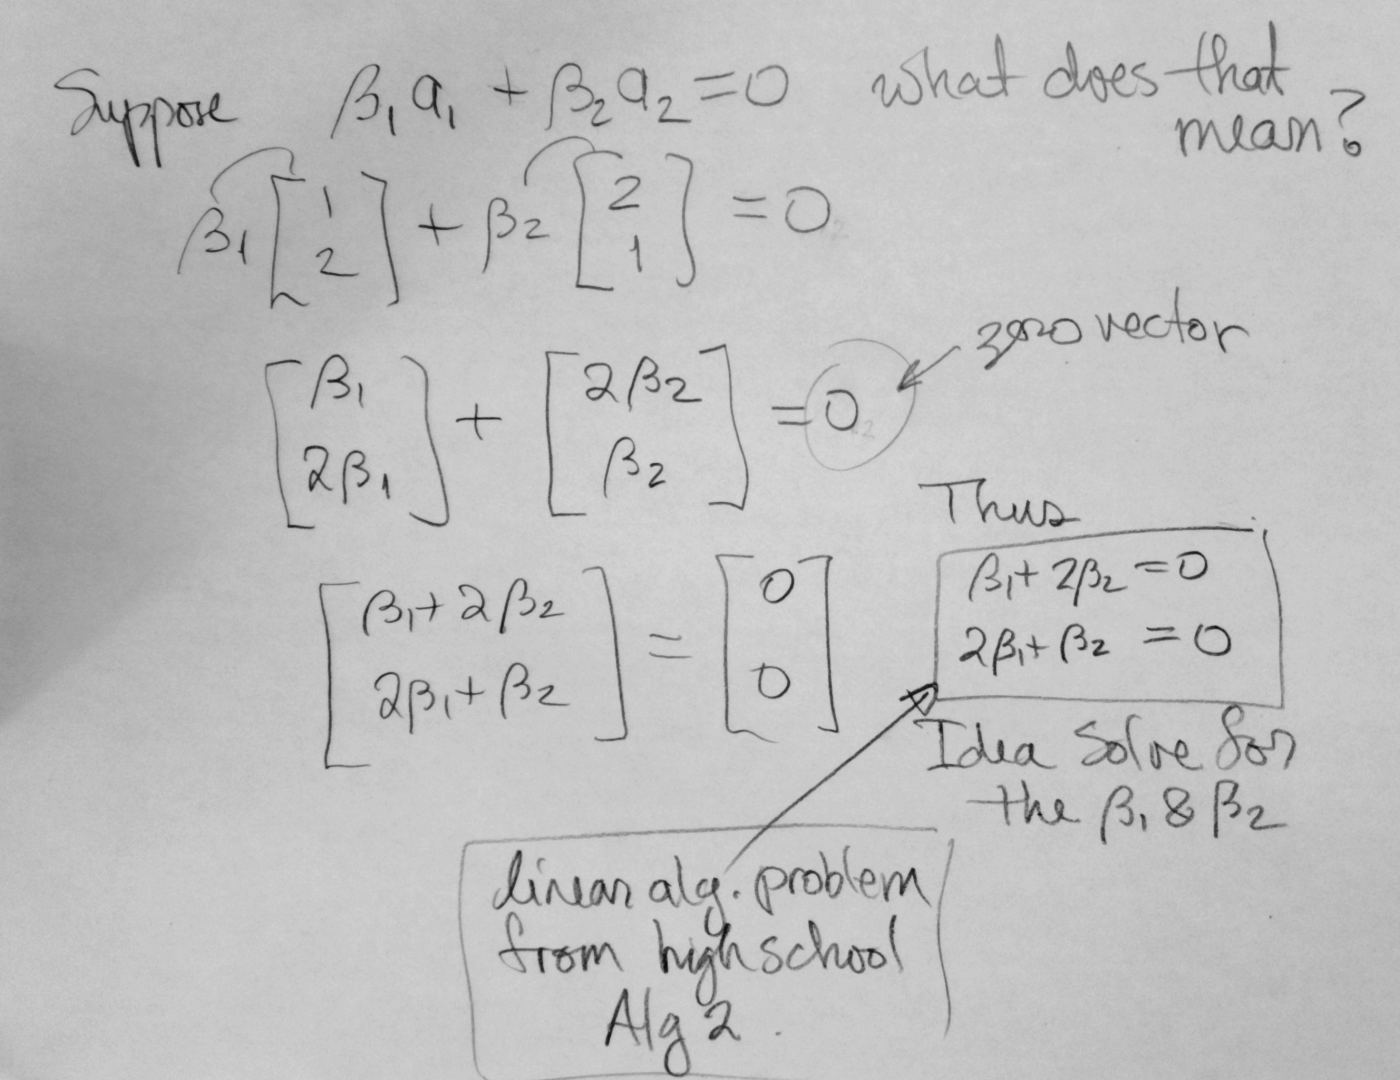 Suppose β₁a₁ + β₂a₂ = 0 what does that mean?
β₁ [1 2] + β₂ [2 1] = 0₂
[β₁ 2β₁] + [2β₂ β₂] = 0₂ ← zero vector
Thus
[β₁ + 2β₂ 2β₁ + β₂] = [0 0]
β₁ + 2β₂ = 0
2β₁ + β₂ = 0
Idea Solve for
the β₁ & β₂
linear alg. problem
from high school
Alg 2.